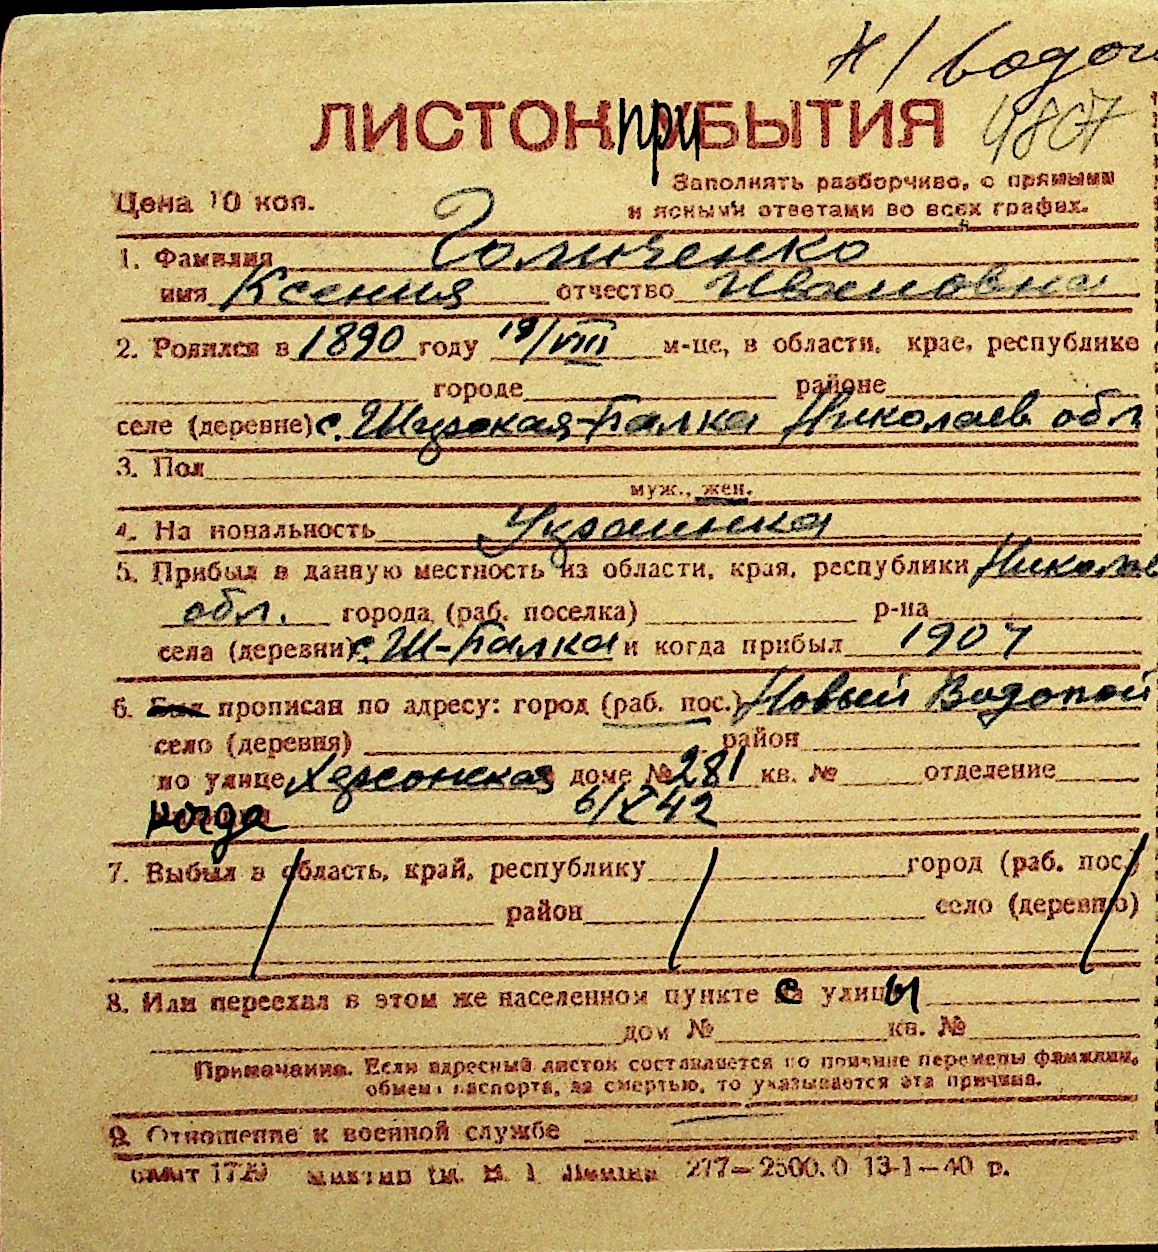 Н/Водоп
4807
ЛИСТОК прибытия
Цена 10 коп.
Заполнять разборчиво, с прямыми
и ясными ответами во всех графах.
1. Фамилия Голиченко
имя Ксения отчество Ивановна
2. Родился в 1890 году 19/VIII м-це, в области, крае, республике
городе районе
селе (деревне) с. Широкая-Балка Николаев обл
3. Пол
муж., жен.
4. Национальность Украинка
5. Прибыл в данную местность из области, края, республики Николаев
обл. города (раб. поселка) р-на
села (деревни) с. Ш-Балка и когда прибыл 1907
6. Был прописан по адресу: город (раб. пос.) Новый Водопой
село (деревня) район
по улице Херсонская доме № 281 кв. № отделение
когда 6/X 42
7. Выбыл в область, край, республику город (раб. пос.)
район село (деревню)
8. Или переехал в этом же населенном пункте с улицы
дом № кв. №
Примечание. Если адресный листок составляется по причине перемены фамилии,
обмена паспорта, за смертью, то указывается эта причина.
9. Отношение к военной службе
1729 277—2500.0 13-1—40 р.